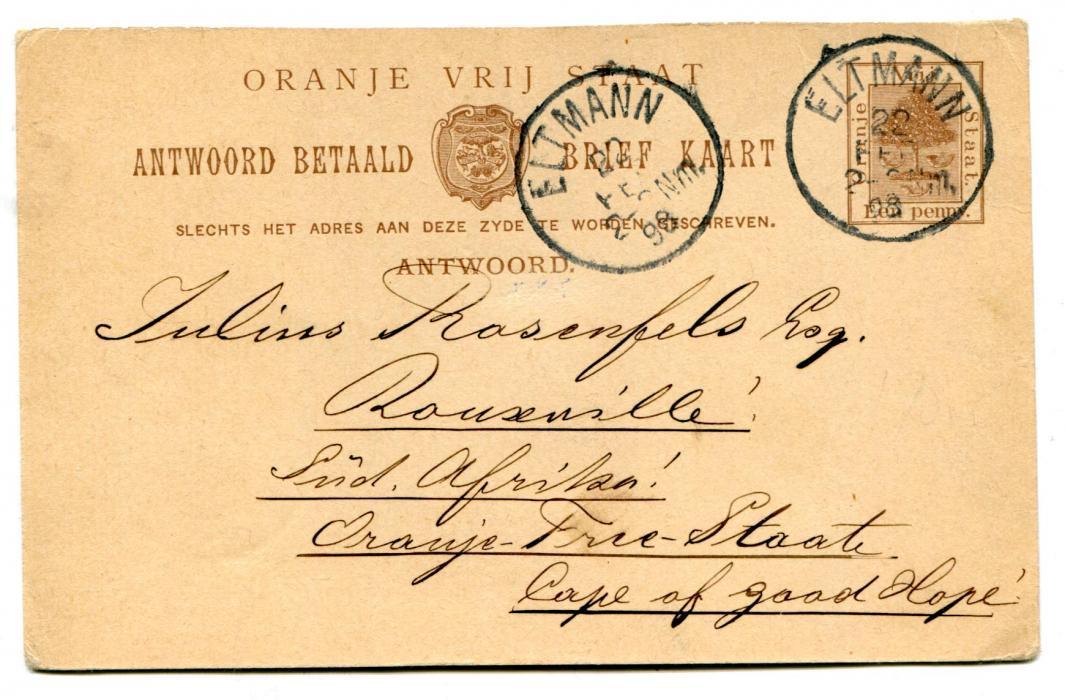 ORANJE VRIJ STAAT
ANTWOORD BETAALD BRIEF KAART
SLECHTS HET ADRES AAN DEZE ZYDE TE WORDEN GESCHREVEN.
ANTWOORD.
ELTMANN
22
FEB
2-3 Nm.
98
ELTMANN
22
FEB
98
Oranje
Vrij
Staat.
Een penny.
Julius Rosenfels Esq.
Rouxville
Süd. Afrika
Oranje-Free-Staate
Cape of good Hope